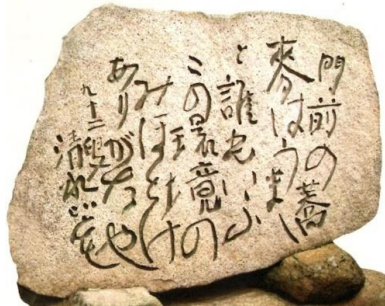 門前の蕎
麥はうまい
と誰も云ふ
この環境の
みほとけ
ありがたや
九十二
清水